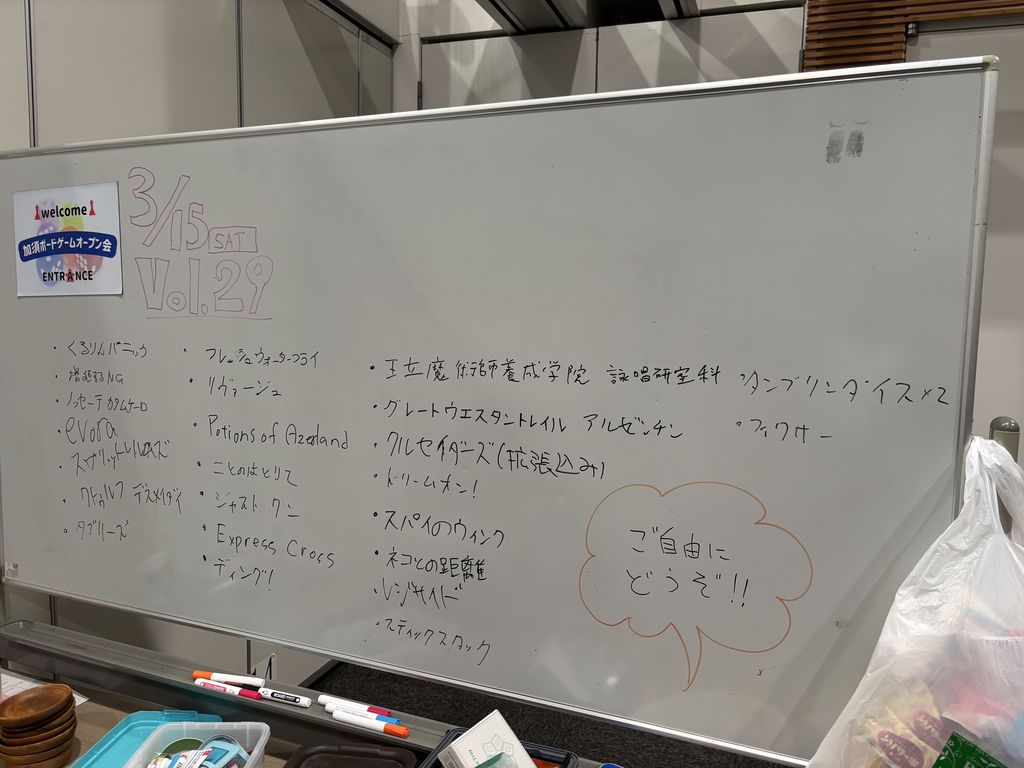 welcome
加須ボードゲームオープン会
ENTRANCE
3/15 SAT
Vol.29
・くるりんパニック
・増殖するNG
・ノッセーテ カタムケーロ
・evora
・スプリットレルムズ
・クトゥルフ デスメイダイ
・タブリーズ
・フレッシュウォーターフライ
・リヴァージュ
・Potions of Azerland
・ことのはとりて
・ジャスト ワン
・Express Cross
・ディング!
・王立魔術師養成学院 詠唱研室科
・グレートウエスタントレイル アルゼンチン
・クルセイダーズ(拡張込み)
・ドリームオン!
・スパイのウィンク
・ネコとの距離
・レジサイド
・スティックスタック
・タンブリンダイス×2
・フィクサー
ご自由に
どうぞ!!